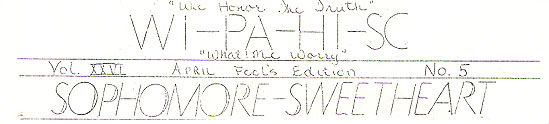 "We Honor The Truth"
WI-PA-HI-SC
"What Me Worry"
Vol. XXVI April Fool's Edition No. 5
SOPHOMORE-SWEETHEART